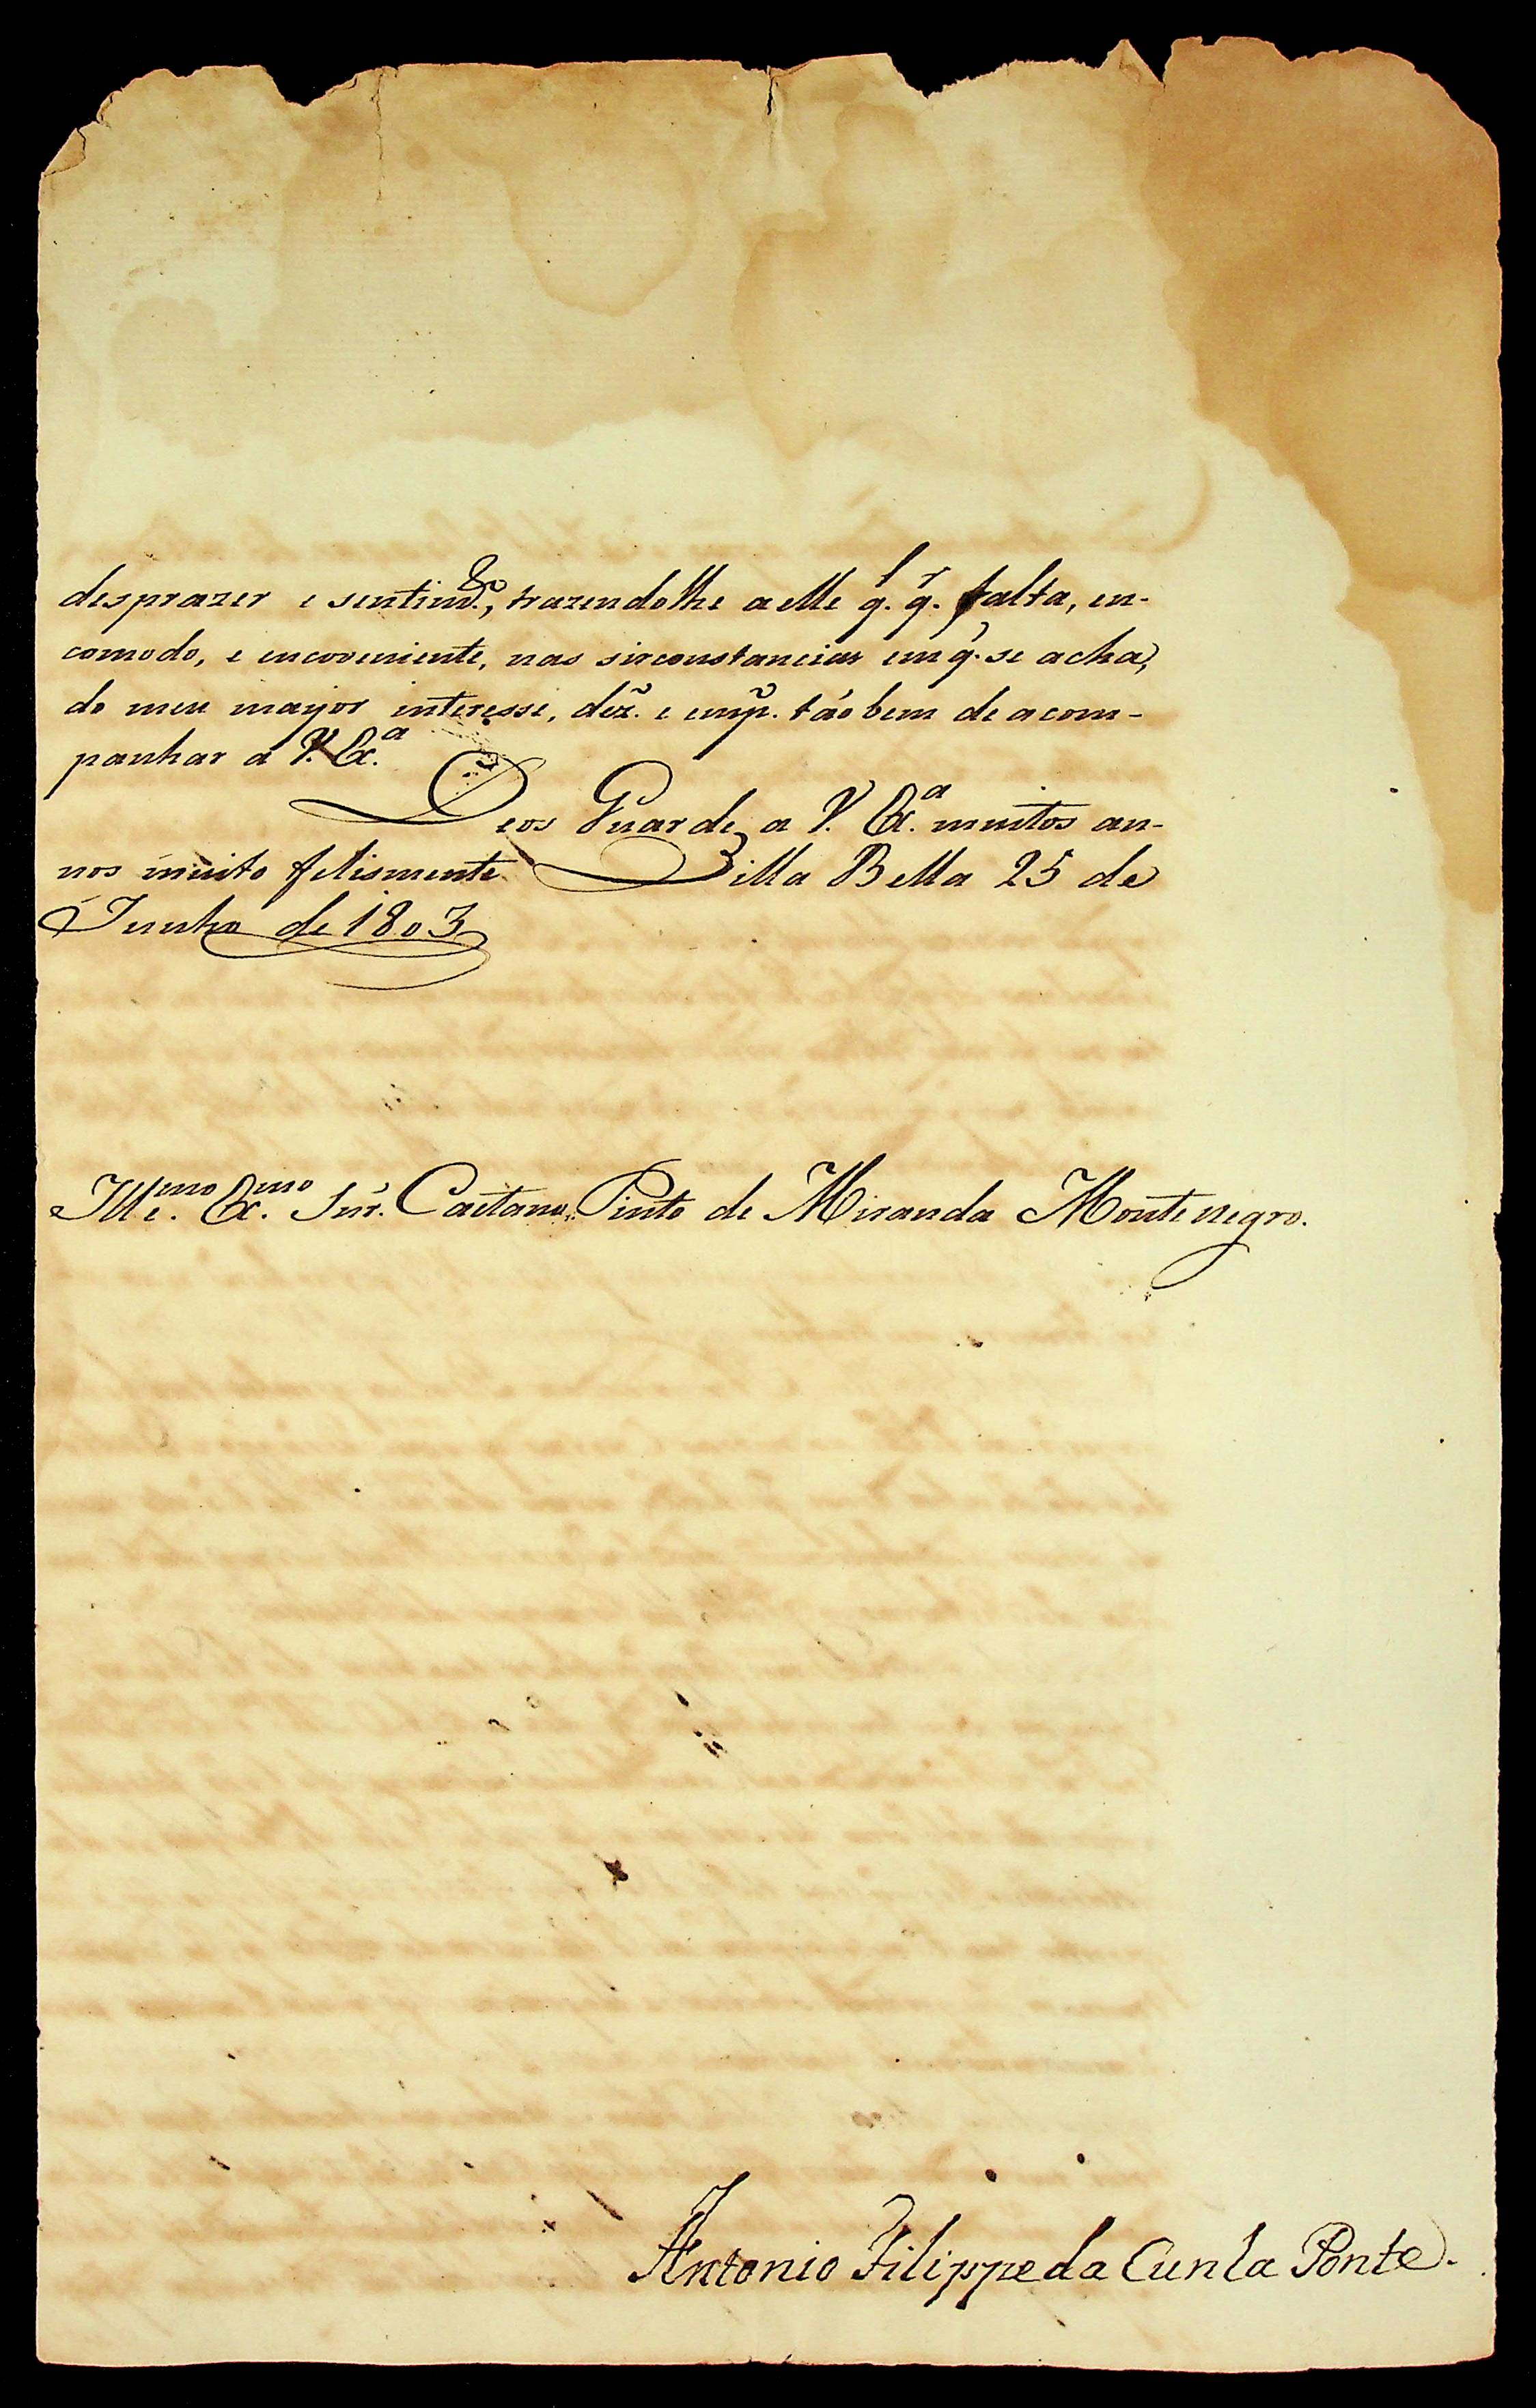 desprazer e sentim.to, trazendolhe a elle q.l q.r falta, en-
comodo, e encoveniente, nas sirconstancias em q. se acha,
do meu mayor interesse, dez.o e emp.o tão bem de acom-
panhar a V. Ex.a
Deos Guarde a V. Ex.a muitos an-
nos muito felismente Villa Bella 25 de
Junho de 1803
Ille.mo Ex.mo Snr. Caetano Pinto de Miranda Montenegro.
Antonio Filippe da Cunha Ponte.